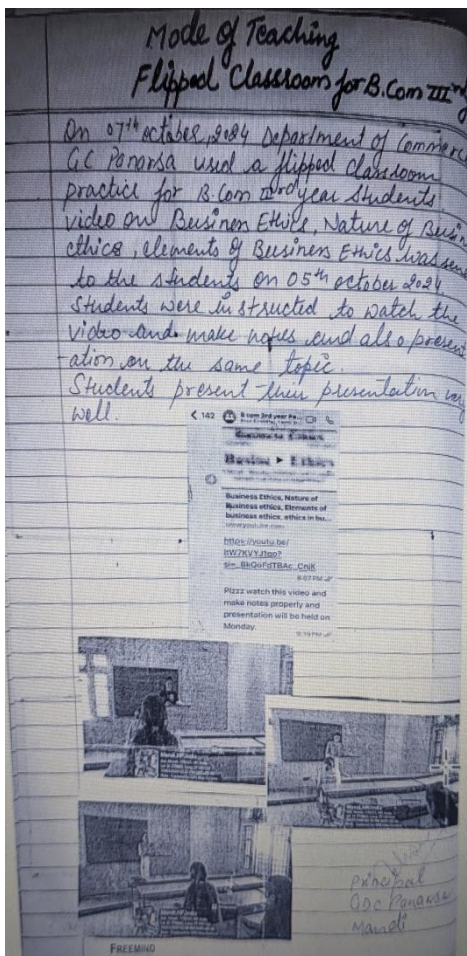 Mode of Teaching
Flipped Classroom for B.Com IIIrd
On 07th october, 2024 Department of Commerce
GC Panarsa used a flipped classroom
practice for B.Com IIIrd year students.
video on Business Ethics, Nature of Busin
ethics, elements of Business Ethics was sent
to the students on 05th october 2024
Students were instructed to watch the
video and make notes and also present
-ation on the same topic.
Students present their presentation very
well.
142 B com 3rd year Pa...
Business Ethics, Nature of
Business ethics, Elements of
business ethics, ethics in bu...
www.youtube.com
https://youtu.be/
8:07 PM
Plzzz watch this video and
make notes properly and
presentation will be held on
Monday.
Principal
GDC Panarsa
Mandi
FREEMIND